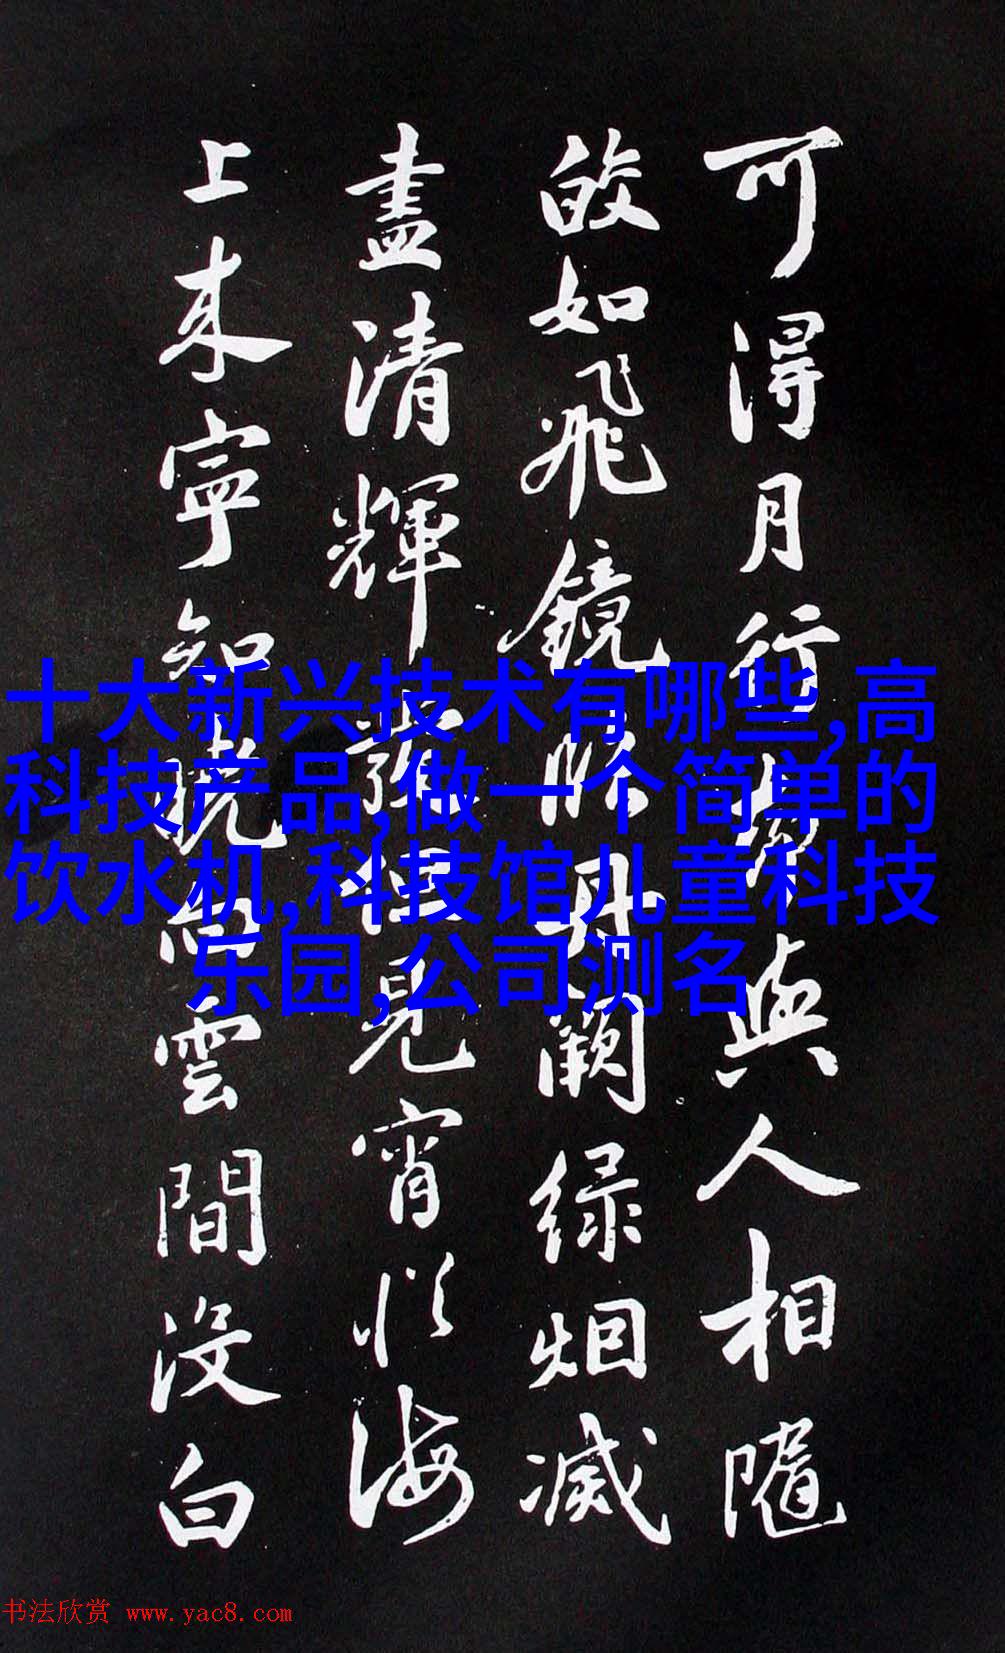 可得月行却與人相隨
皎如飛鏡臨丹闕緑烟滅
盡清輝發但見宵從海
上来寧知曉向雲間沒白
十大新兴技术有哪些,高
科技产品,做一个简单的
饮水机,科技馆儿童科技
乐园,公司测名
书法欣赏 www.yac8.com